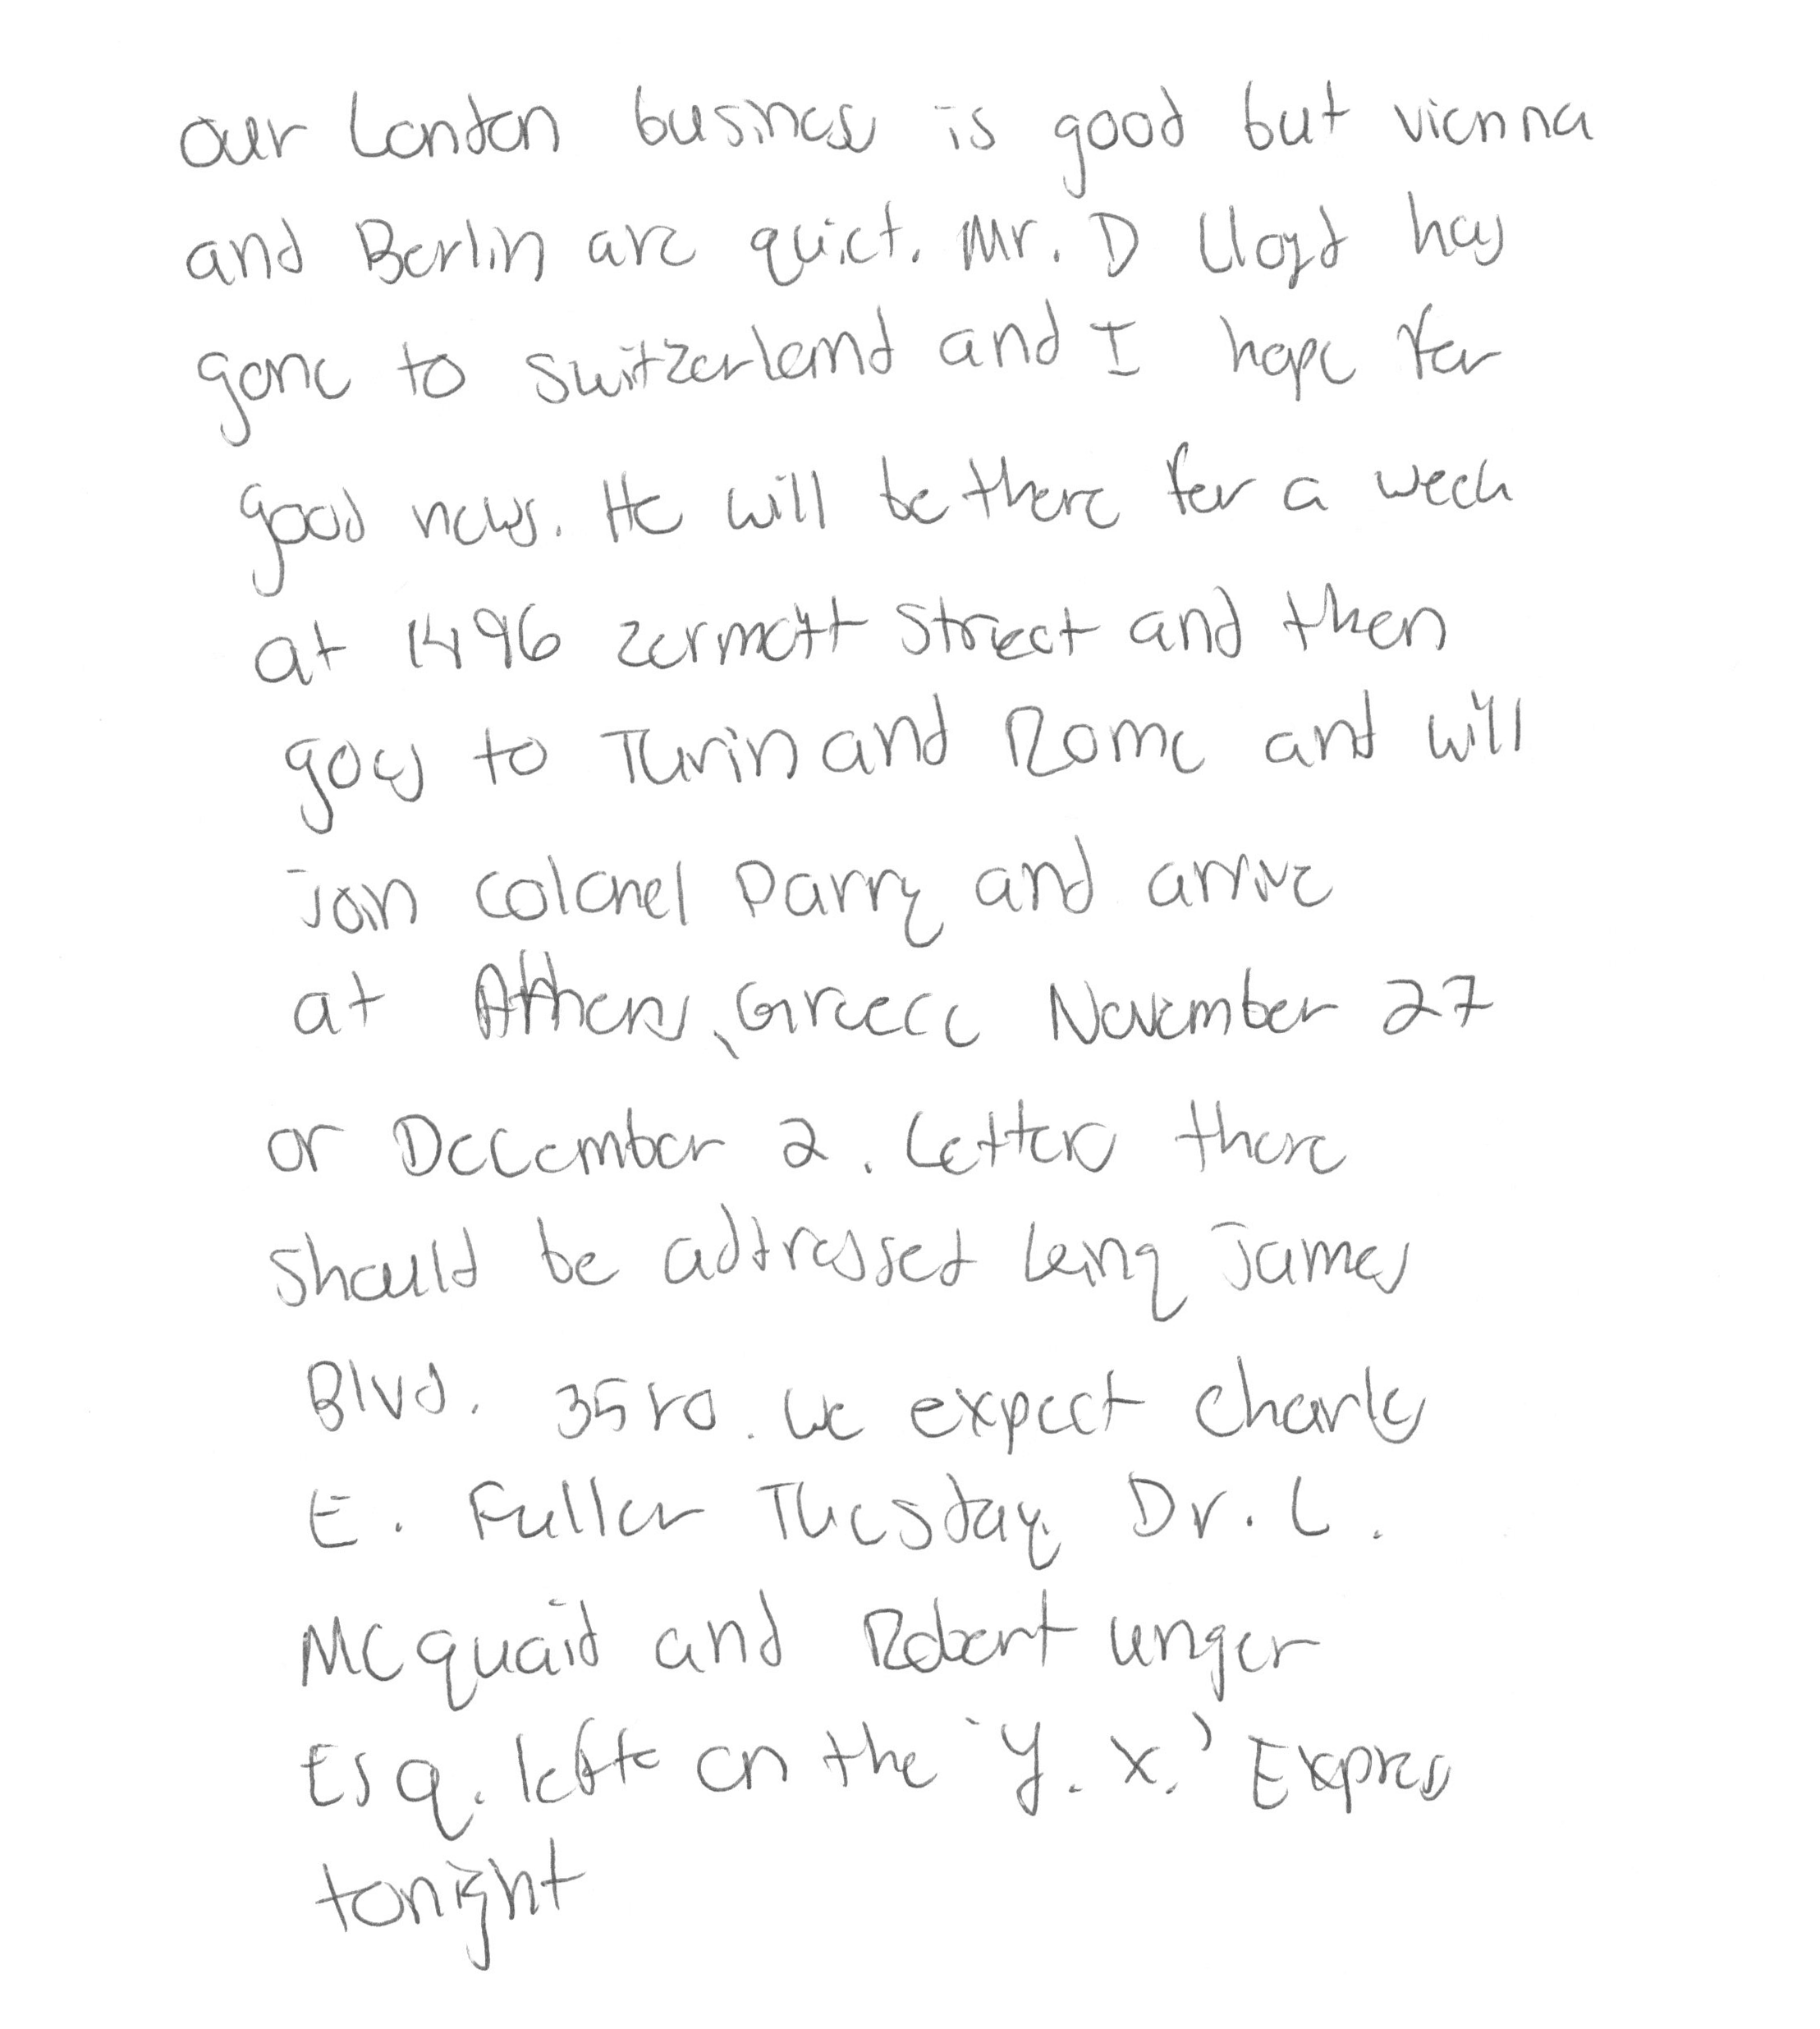 our London business is good but vienna
and Berlin are quiet. Mr. D Lloyd has
gone to switzerland and I hope for
good news. He will be there for a week
at 1496 zermott street and then
goes to Turin and Rome and will
join colonel Parry and arrive
at Athens, Greece November 27
or December 2. Letters there
should be addressed king James
Blvd. 3580. we expect charles
E. Fuller Tuesday. Dr. L.
McQuaid and Robert unger
Esq. lefte on the 'Y. X.' Express
tonight